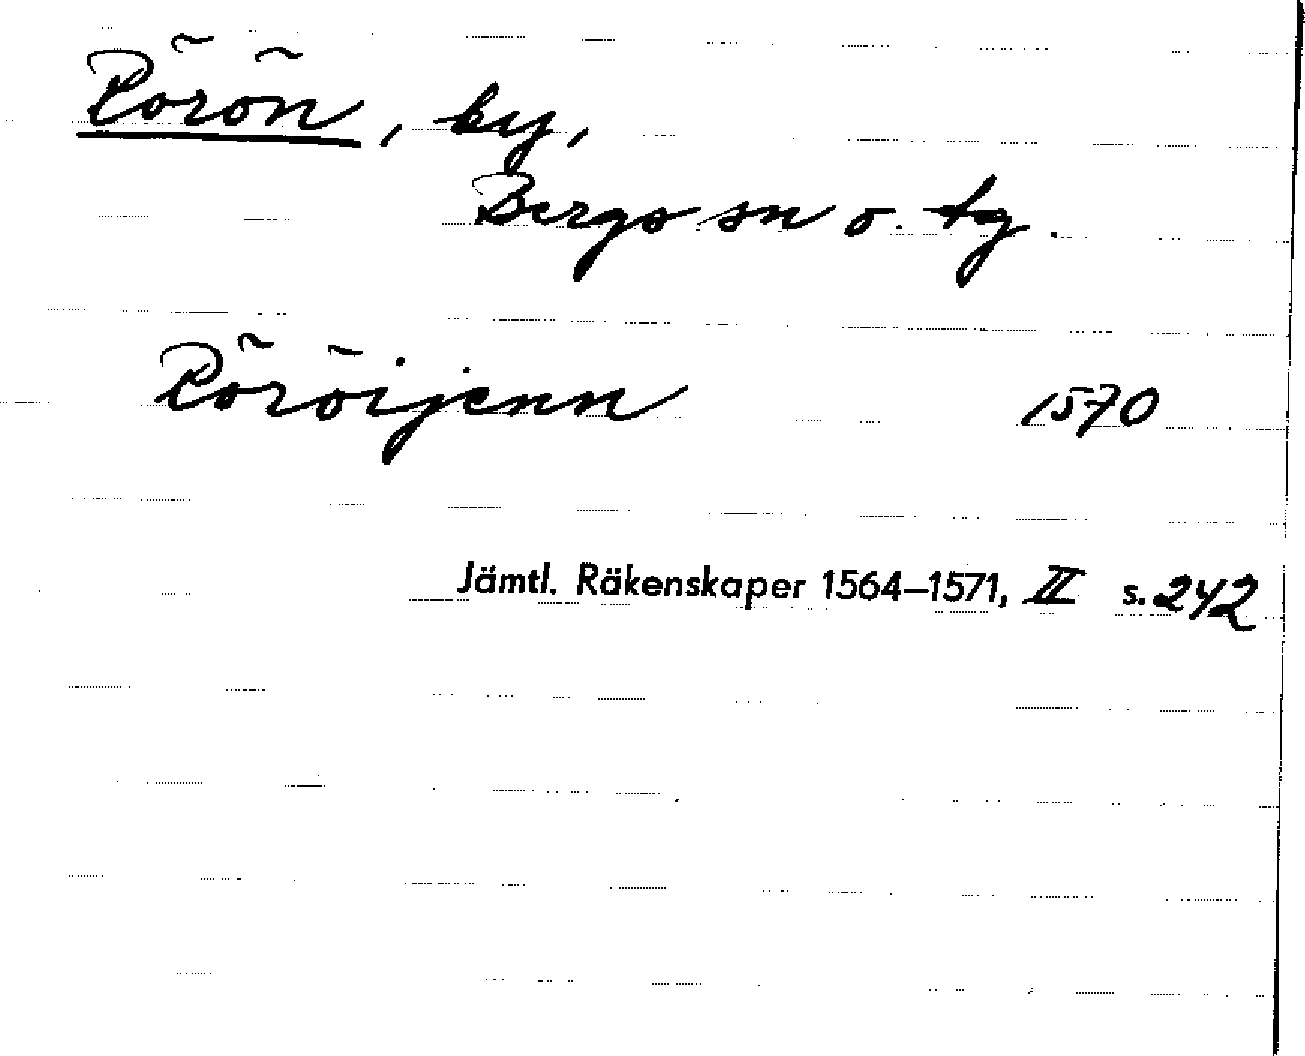 Rörön, by,
Bergs sn o. tg.
Röröijenn 1570
Jämtl. Räkenskaper 1564–1571, II s. 242